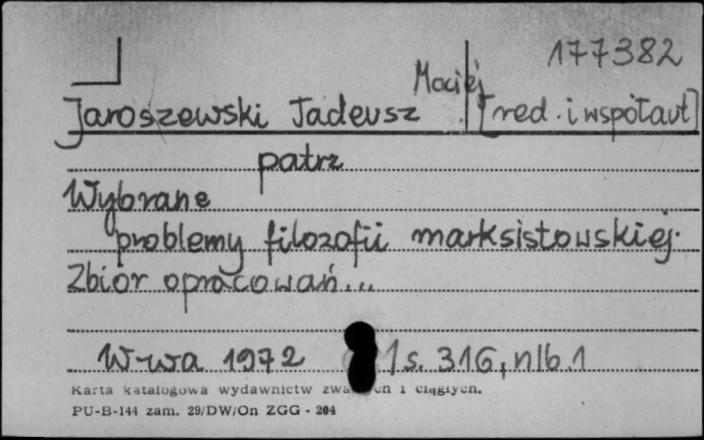 177382
Maciej
Jaroszewski Tadeusz [red. i współaut]
patrz
Wybrane
problemy filozofii marksistowskiej.
Zbiór opracowań...
W-wa 1972 s. 316, nlb. 1
Karta katalogowa wydawnictw i ciągłych.
PU-B-144 zam. 29/DW/On ZGG - 204